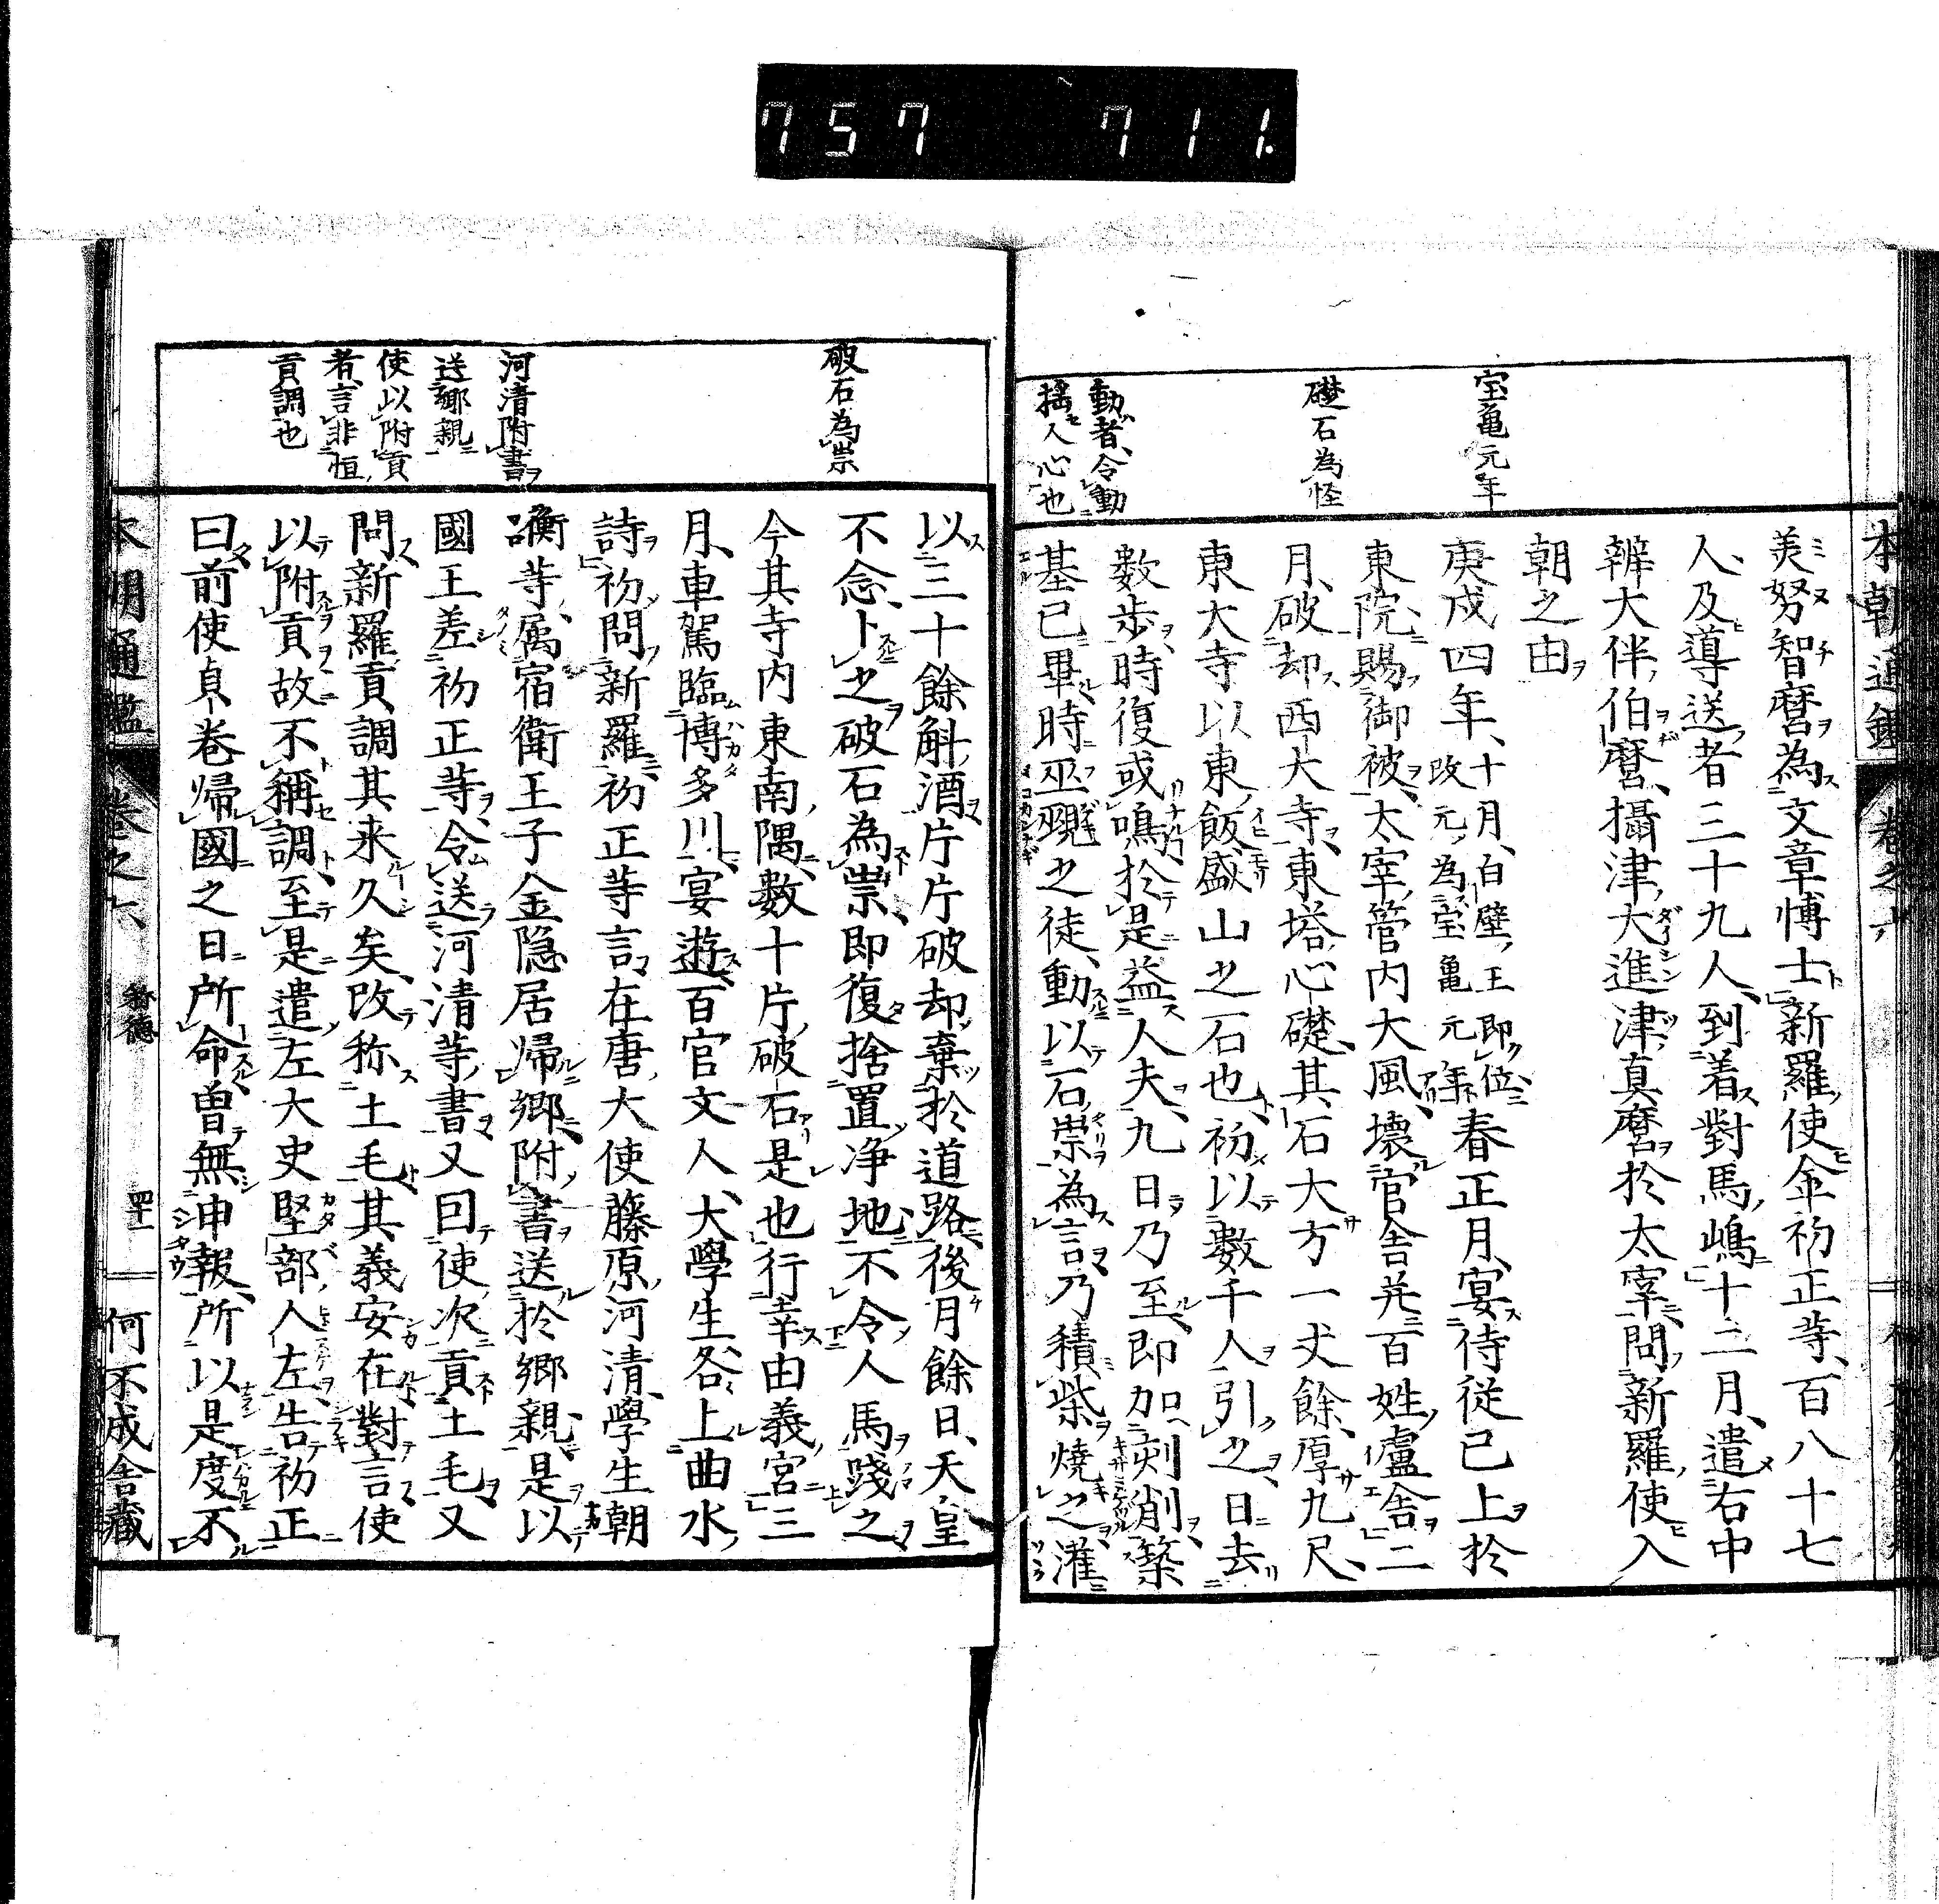 757 711
本朝通鑑 卷之
美努智麿為文章博士新羅使金初正等百八十七
人及導送者三十九人到着對馬嶋十二月遣右中
辨大伴伯麿攝津大進津真麿於太宰問新羅使入
朝之由
宝亀元年
庚戌四年十月白壁王即位
改元為宝亀元年
春正月宴侍従已上於
東院賜御被太宰管内大風壊官舎并百姓盧舎二
礎石為怪
月破却西大寺東塔心礎其石大方一丈餘厚九尺
東大寺以東飯盛山之石也初以數千人引之日去
動者令動
揺人心也
數歩時復或鳴於是益人夫九日乃至即加刻削築
基已畢時巫覡之徒動以石祟為言乃積柴焼之灌
以三十餘斛酒片片破却棄於道路後月餘日天皇
破石為祟
不念卜之破石為祟即復捨置净地不令人馬踐之
今其寺内東南隅數十片破石是也行幸由義宮三
月車駕臨博多川宴遊百官文人大學生各上曲水
詩初問新羅初正等言在唐大使藤原河清學生朝
河清附書
送郷親
衡等属宿衛王子金隠居帰郷附書送於郷親是以
國王差初正等令送河清等書又囙使次貢土毛又
使以附貢
者言非恒
貢調也
問新羅貢調其来久矣改称土毛其義安在對言使
以附貢故不稱調至是遣左大史堅部人左告初正
曰前使貞巻帰國之日所命曽無申報所以是度不
本朝通鑑 卷之六 称德 四十一 何不成舎藏